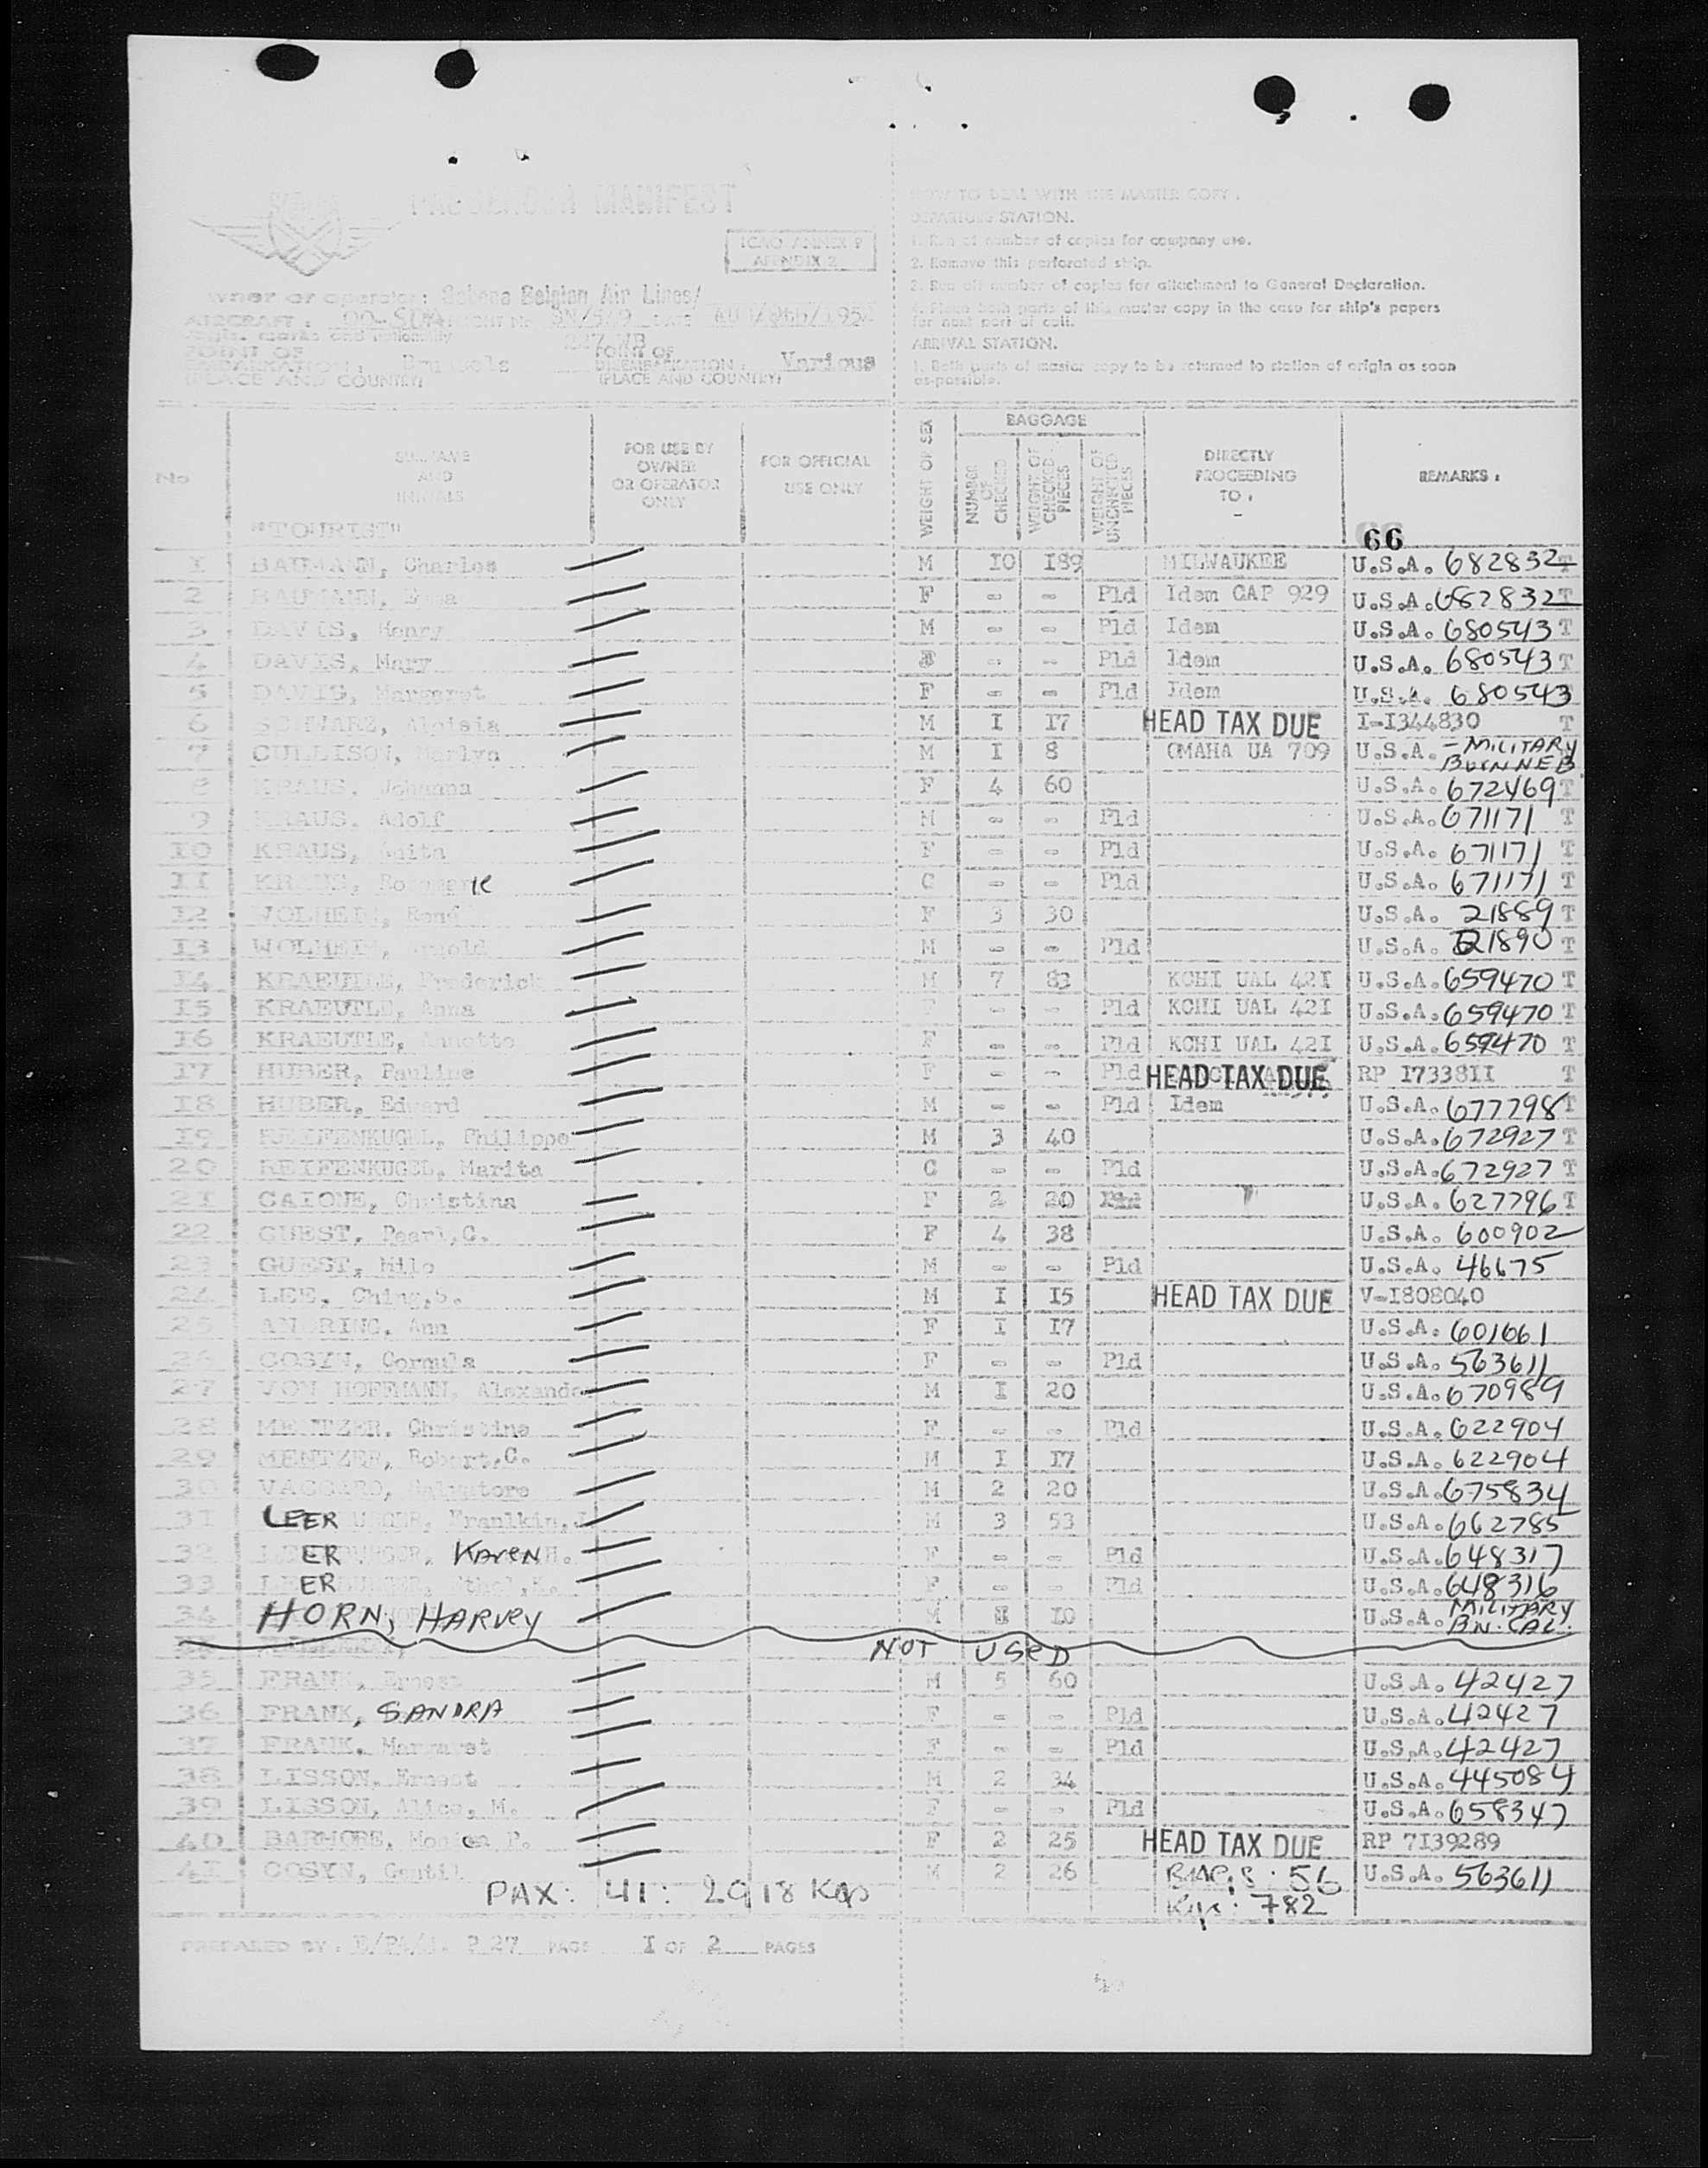 PASSENGER MANIFEST
ICAO ANNEX 9
APENDIX 2
HOW TO DEAL WITH THE MASTER COPY.
DEPARTURE STATION.
1. Run of number of copies for company use.
2. Remove this perforated strip.
3. Run off number of copies for attachment to General Declaration.
4. Place both parts of this master copy in the case for ship's papers
for next port of call.
ARRIVAL STATION.
1. Both parts of master copy to be returned to station of origin as soon
as possible.
Owner or operator: Sabena Belgian Air Lines/
AIRCRAFT: SN/549
POINT OF EMBARKATION: Brussels POINT OF DISEMBARKATION: Various
(PLACE AND COUNTRY) (PLACE AND COUNTRY)
No SURNAME AND INITIALS FOR USE BY OWNER OR OPERATOR ONLY FOR OFFICIAL USE ONLY WEIGHT OR SEX BAGGAGE NUMBER OF CHECKED WEIGHT OF CHECKED PIECES WEIGHT OF UNCHECKED PIECES DIRECTLY PROCEEDING TO: REMARKS:
"TOURIST" 66
1 BAUMANN, Charles M 10 189 MILWAUKEE U.S.A. 682832 T
2 BAUMANN, F - - Pld Idem CAP 929 U.S.A. 682832 T
3 DAVIS, Henry M - - Pld Idem U.S.A. 680543 T
4 DAVIS, Mary - - Pld Idem U.S.A. 680543 T
5 DAVIS, Margaret F - - Pld Idem U.S.A. 680543
6 Aloisia M I 17 HEAD TAX DUE I-I344830 T
7 CULLISON, Marlyn M I 8 OMAHA UA 709 U.S.A. - MILITARY
8 KRAUS. Johanna F 4 60 U.S.A. 672469 T
9 KRAUS. Adolf M - - Pld U.S.A. 671171 T
10 KRAUS, Anita F - - Pld U.S.A. 671171 T
11 KRAUS, Rosemarie C - - Pld U.S.A. 671171 T
12 WOLHEIM, René F 3 30 U.S.A. 21889 T
13 WOLHEIM, Arnold M - - Pld U.S.A. 21890 T
14 KRAEUTLE, Frederick M 7 83 KCHI UAL 421 U.S.A. 659470 T
15 KRAEUTLE, Anna F - - Pld KCHI UAL 421 U.S.A. 659470 T
16 KRAEUTLE, Annette F - - Pld KCHI UAL 421 U.S.A. 659470 T
17 HUBER, Pauline F - - Pld HEAD TAX DUE RP I7338II T
18 HUBER, Edward M - - Pld Idem U.S.A. 677798 T
19 REIFENKUGEL, Philippe M 3 40 U.S.A. 672927 T
20 REIFENKUGEL, Marita C - - Pld U.S.A. 672927 T
21 CAIONE, Christina F 2 20 U.S.A. 627796 T
22 GUEST, Pearl,C. F 4 38 U.S.A. 600902
23 GUEST, Milo M - - Pld U.S.A. 46675
24 LEE, Ching,S. M I 15 HEAD TAX DUE V-I808040
25 Ann F I 17 U.S.A. 601661
26 COSYN, Cornula F - - Pld U.S.A. 563611
27 VON HOFFMANN, Alexande M I 20 U.S.A. 670989
28 MENTZER. Christine F - - Pld U.S.A. 622904
29 MENTZER, Robert,C. M I 17 U.S.A. 622904
30 VACCARO, Salvatore M 2 20 U.S.A. 675834
31 LEER M 3 53 U.S.A. 662785
32 ER KAREN F - - Pld U.S.A. 648317
33 ER F - - Pld U.S.A. 648316
34 HORN, HARVEY M 10 U.S.A. MILITARY
NOT USED
35 FRANK, Ernest M 5 60 U.S.A. 42427
36 FRANK, SANDRA F - - Pld U.S.A. 42427
37 FRANK. Margaret F - - Pld U.S.A. 42427
38 LISSON, Ernest M 2 34 U.S.A. 445084
39 LISSON, Alice, M. F - - Pld U.S.A. 658347
40 BARMORE, P. F 2 25 HEAD TAX DUE RP 7I39289
41 COSYN, Gentil M 2 26 U.S.A. 563611
PAX: 41: 2918 Kgs 56
Kgs: 782
PREPARED BY: P 27 PAGE I OF 2 PAGES